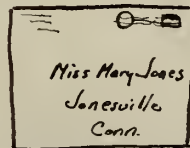 Miss Mary Jones
Jonesville
Conn.